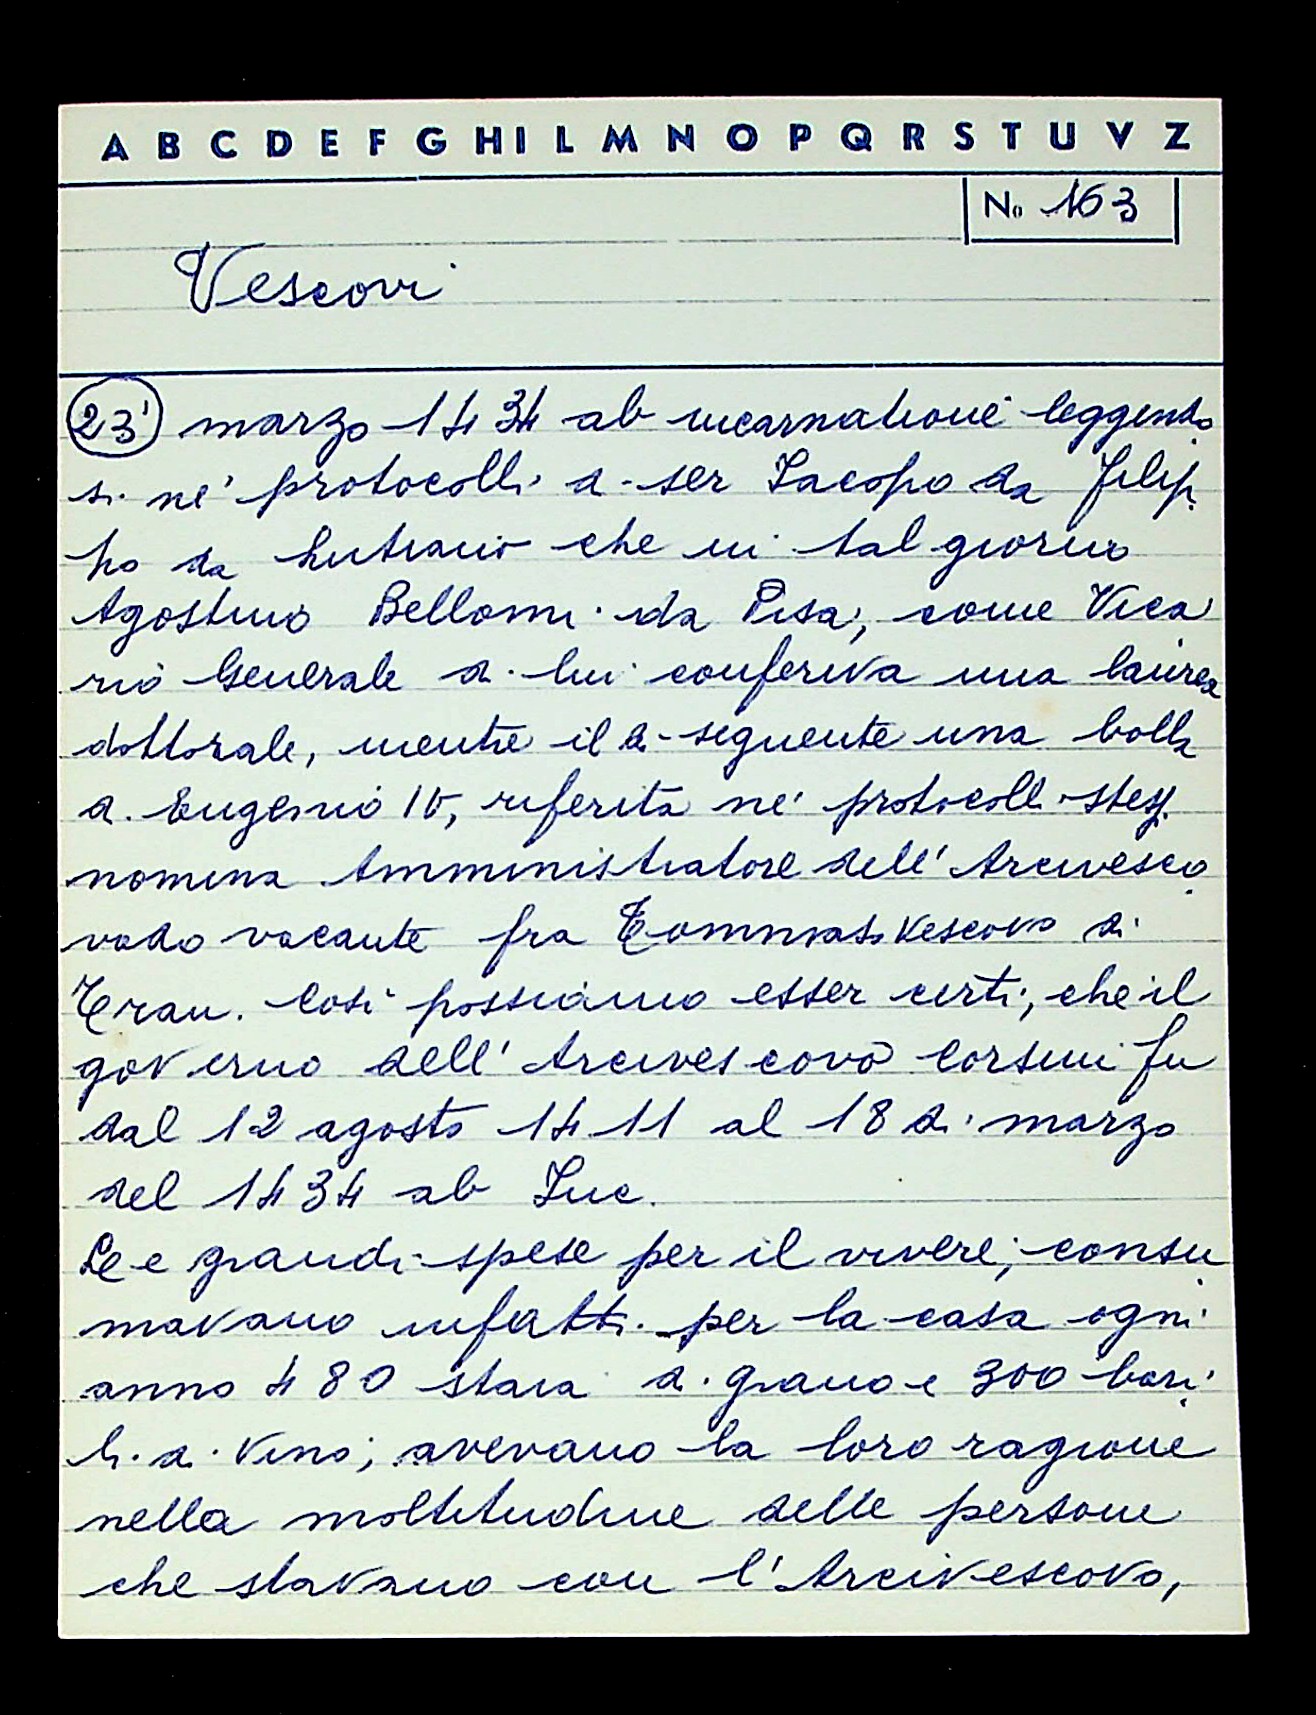 A B C D E F G H I L M N O P Q R S T U V Z
No 163
Vescovi
23' marzo 1434 ab incarnatione leggendo
si ne' protocolli di ser Iacopo da Filip
po da Lutiano che in tal giorno
Agostino Bellomi da Pisa, come Vica
rio Generale di lui conferiva una laurea
dottorale, mentre il dì seguente una bolla
di Eugenio IV, riferita ne' protocolli stessi
nomina Amministratore dell'Arcivesco
vado vacante fra Tommaso Vescovo di
Trau. Così possiamo esser certi, che il
governo dell'Arcivescovo Corsini fu
dal 12 agosto 1411 al 18 di marzo
del 1434 ab Inc.
Le e grandi spese per il vivere, consu
mavano infatti per la casa ogni
anno 480 staia di grano e 300 bari
li di vino; avevano la loro ragione
nella moltitudine delle persone
che stavano con l'Arcivescovo,